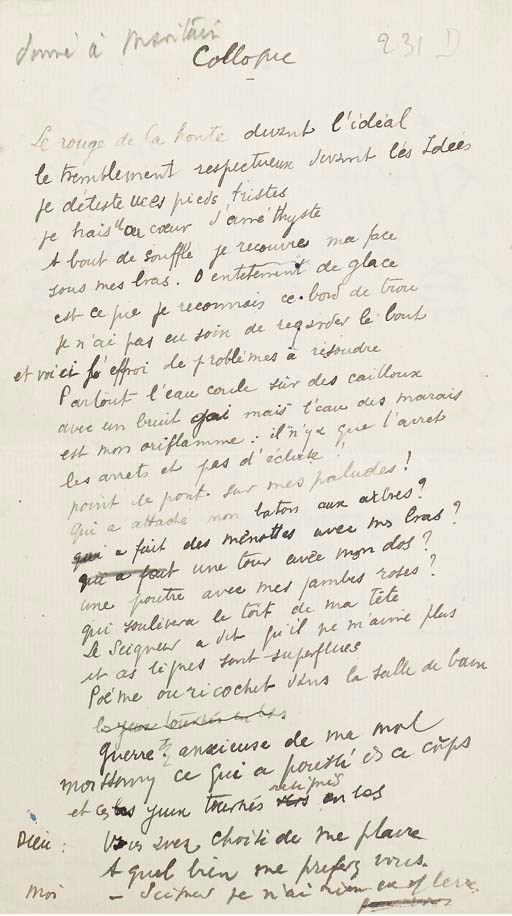 donné à Maritain
231 D
Colloque
Le rouge de la honte devant l'idéal
le tremblement respectueux devant les Idées
je déteste mes pieds tristes
je hais au cœur d'améthyste
A bout de souffle je recouvre ma face
sous mes bras. O entêtement de glace
est ce que je reconnais ce bord de trou
je n'ai pas eu soin de regarder le bout
et voici l'effroi de problèmes à résoudre
Partout l'eau coule sur des cailloux
avec un bruit gai mais l'eau des marais
est mon oriflamme : il n'y a que l'arret
les arrets et pas d'écluse
point de pont sur mes paludes !
Qui a attaché mon baton aux arbres ?
qui a fait des menottes avec mes bras ?
qui a fait une tour avec mon dos ?
une poutre avec mes jambes roses ?
qui soulèvera le toit de ma tête
Le Seigneur a dit qu'il ne m'aime plus
et ces lignes sont superflues
Poème ou ricochet dans la salle de bain
les yeux tournés en bas
guerre anxieuse de ma mal
ce qui a poussé ce corps
et ces yeux tournés vers en bas
Dieu : Vous avez choisi de me plaire
A quel bien me preferez vous
Moi — Seigneur je n'ai rien